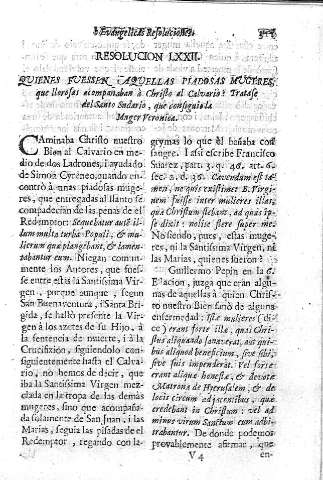 ò Evangelicas Resoluciones.
RESOLUCION LXXII.
QUIENES FUESSEN AQUELLAS PIADOSAS MUGERES,
que llorosas acompañaban à Christo al Calvario? Tratase
del Santo Sudario, que consiguió la
Muger Veronica.
CAminaba Christo nuestro
Bien al Calvario en me-
dio de dos Ladrones, i ayudado
de Simon Cyreneo, quando en-
contrò à unas piadosas muge-
res, que entregadas al llanto se
compadecian de las penas de el
Redemptor: Sequebatur autem il-
lum multa turba Populi, & mu-
lierum quæ plangebant, & lamen-
tabantur eum. Niegan comun-
mente los Autores, que fues-
se entre estas la Santissima Vir-
gen, porque aunque, segun
San Buenaventura, i Santa Bri-
gida, se hallò presente la Vir-
gen à los azotes de su Hijo, à
la sentencia de muerte, i à la
Crucifixion, siguiendolo con-
siguientemente hasta el Calva-
rio, no hemos de decir, que
iba la Santissima Virgen mez-
clada en la tropa de las demàs
mugeres, sino que acompaña-
da solamente de San Juan, i las
Marias, seguia las pisadas de el
Redemptor, regando con la-
grymas lo que èl bañaba con
sangre. I assi escribe Francisco
Suarez, part. 3. q. 46. art. 6.
sec. 2. d. 36. Cavendum est ta-
men, ne quis existimet B. Virgi-
nem fuisse inter mulieres illas,
quæ Christum flebant, ad quas ip-
se dixit: nolite flere super me.
No siendo, pues, estas muge-
res, ni la Santissima Virgen, ni
las Marias, quienes fueron?
Guillermo Pepin en la 6.
Elacion, juzga que eran algu-
nas de aquellas à quien Chris-
to nuestro Bien sanò de alguna
enfermedad: istæ mulieres (di-
ce) erant forte illæ, quas Chri-
stus aliquando sanaverat, aut qui-
bus aliquod beneficium, sive sibi,
sive suis impenderat. Vel forte
erant aliquæ honestæ, & devotæ
Matronæ de Hierusalem, & de
locis circum adjacentibus, quæ
credebant in Christum: vel ad
minus virum Sanctum eum arbi-
trabantur. De donde podemos
provablemente afirmar, que
V 4
en-